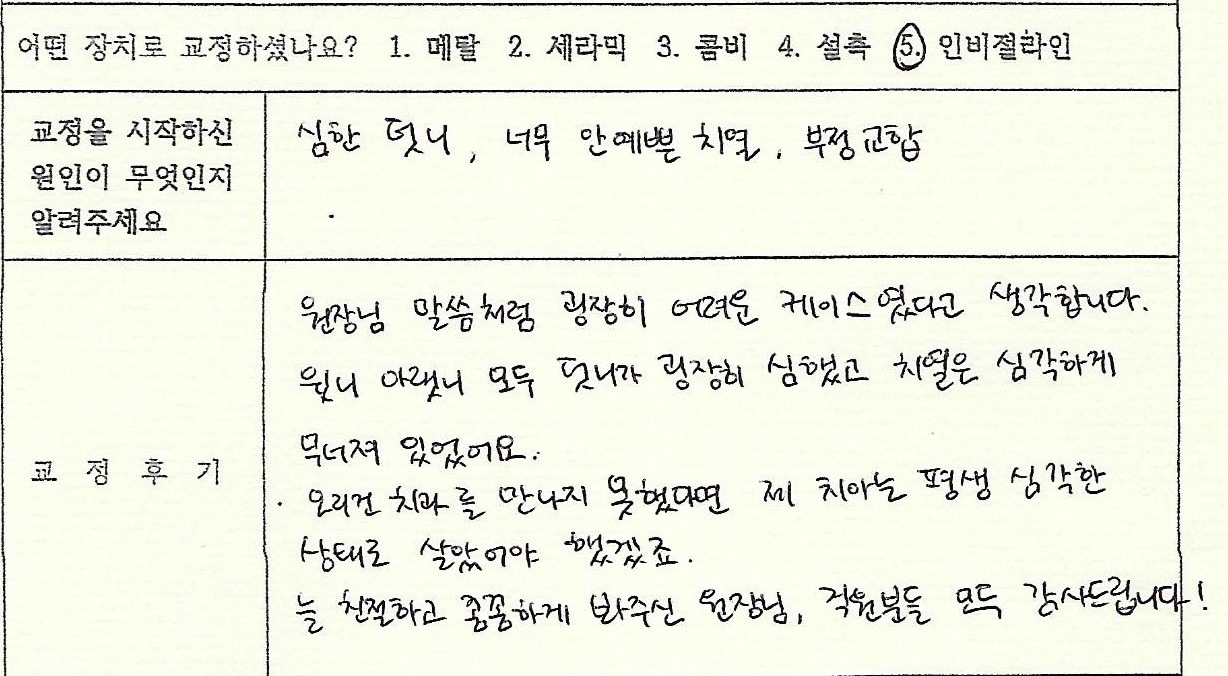 어떤 장치로 교정하셨나요? 1. 메탈 2. 세라믹 3. 콤비 4. 설측 5. 인비절라인
교정을 시작하신
원인이 무엇인지
알려주세요
심한 덧니, 너무 안예쁜 치열, 부정교합
교 정 후 기
원장님 말씀처럼 굉장히 어려운 케이스였다고 생각합니다.
윗니 아랫니 모두 덧니가 굉장히 심했고 치열은 심각하게
무너져 있었어요.
오리건 치과를 만나지 못했다면 제 치아는 평생 심각한
상태로 살았어야 했겠죠.
늘 친절하고 꼼꼼하게 봐주신 원장님, 직원분들 모두 감사드립니다!